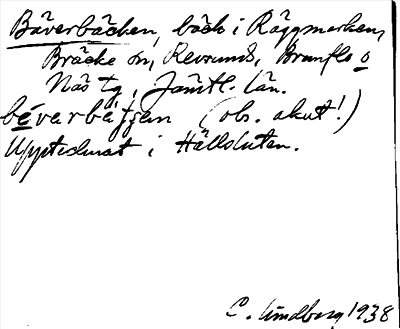 Bäverbäcken, bäck i Räggmarken,
Bräcke sn, Revsunds, Brunflo o
Näs tg, Jämtl. län.
bévarbäʃʃen (obs. akut!)
Upptecknat i Hällsluten.
C. Lindberg 1938